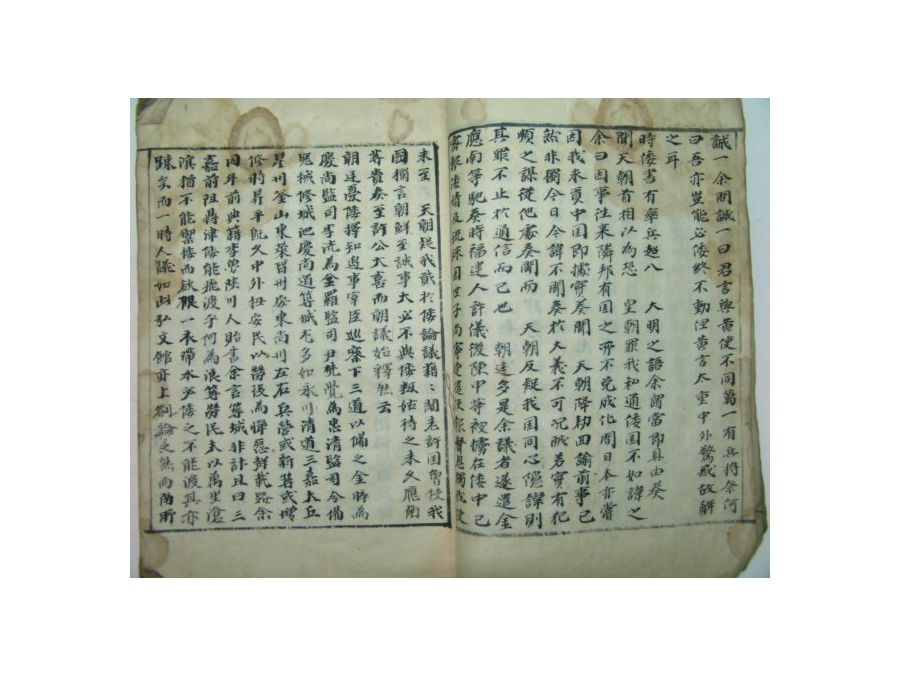 誠一余問誠一曰君言與黃使不同萬一有兵將奈何
曰吾亦豈能必倭終不動但黃言太重中外驚惑故解
之耳
時倭書有兵超入 大明之語余謂當即具由奏
聞天朝首相以為恐 皇朝罪我私通倭国不如諱之
余曰因事往来隣邦有国之所不免成化間日本亦嘗
因我求貢中国即據實奏聞 天朝降勅回諭前事已
然非獨今日今諱不聞奏於大義不可况賊若實有犯
順之謀從他處奏聞而 天朝反疑我国同心隱諱則
其罪不止於通信而已也 朝廷多是余議者遂遣金
應南等馳奏時福建人許儀後陳申等被擄在倭中已
密報倭情及琉球国世子尚寧連遣使報聲息獨我使
未至 天朝疑我貳於倭論議藉〻閣老許国曾使我
國獨言朝鮮至誠事大必不與倭叛姑待之未久應南
等賫奏至許公大喜而朝議始釋然云
朝廷憂倭擇知邊事宰臣巡察下三道以備之金睟為
慶尚監司李洸為全羅監司尹先覺為忠清監司令備
器械修城池慶尚道築城尤多如永川清道三嘉大丘
星州釜山東萊晉州安東尚州左右兵營或新築或增
修時昇平既久中外狃安民以勞役為憚怨聲載路余
同年前典籍李魯陜川人貽書余言築城非計且曰三
嘉前阻鼎津倭能飛渡乎何為浪築勞民夫以萬里滄
溟猶不能禦倭而欲限一衣帶水必倭之不能渡其亦
踈矣而一時人議如此弘文館亦上劄論之然兩南所